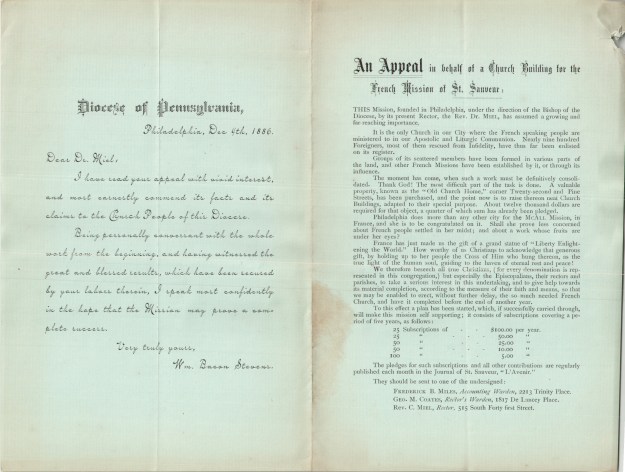 Diocese of Pennsylvania,
Philadelphia, Dec 4th, 1886.
Dear Dr. Miel;
I have read your appeal with vivid interest,
and most earnestly commend its facts and its
claims to the Church People of this Diocese.
Being personally conversant with the whole
work from the beginning, and having witnessed the
great and blessed results, which have been secured
by your labors therein, I speak most confidently
in the hope that the Mission may prove a com-
plete success.
Very truly yours,
Wm. Bacon Stevens.
An Appeal in behalf of a Church Building for the
French Mission of St. Sauveur:
THIS Mission, founded in Philadelphia, under the direction of the Bishop of the
Diocese, by its present Rector, the Rev. Dr. MIEL, has assumed a growing and
far reaching importance.
It is the only Church in our City where the French speaking people are
ministered to in our Apostolic and Liturgic Communion. Nearly nine hundred
Foreigners, most of them rescued from Infidelity, have thus far been enlisted
on its register.
Groups of its scattered members have been formed in various parts of
the land, and other French Missions have been established by it, or through its
influence.
The moment has come, when such a work must be definitively consoli-
dated. Thank God! The most difficult part of the task is done. A valuable
property, known as the "Old Church Home," corner Twenty-second and Pine
Streets, has been purchased, and the point now is to raise thereon neat Church
Buildings, adapted to their special purpose. About twelve thousand dollars are
required for that object, a quarter of which sum has already been pledged.
Philadelphia does more than any other city for the MCALL Mission, in
France, and she is to be congratulated on it. Shall she prove less concerned
about French people settled in her midst; and about a work whose fruits are
under her eyes?
France has just made us the gift of a grand statue of "Liberty Enlight-
ening the World." How worthy of us Christians to acknowledge that generous
gift, by holding up to her people the Cross of Him who hung thereon, as the
true light of the human soul, guiding to the haven of eternal rest and peace!
We therefore beseech all true Christians, (for every denomination is rep-
resented in this congregation,) but especially the Episcopalians, their rectors and
parishes, to take a serious interest in this undertaking, and to give help towards
its material completion, according to the measure of their faith and means, so that
we may be enabled to erect, without further delay, the so much needed French
Church, and have it completed before the end of another year.
To this effect a plan has been started, which, if successfully carried through,
will make this mission self supporting; it consists of subscriptions covering a pe-
riod of five years, as follows:
25 Subscriptions of - - - $100.00 per year.
25 " - - - 50.00 "
50 " - - - 25.00 "
50 " - - - 10.00 "
100 " - - - 5.00 "
The pledges for such subscriptions and all other contributions are regularly
published each month in the Journal of St. Sauveur, "L'Avenir."
They should be sent to one of the undersigned:
FREDERICK B. MILES, Accounting Warden, 2213 Trinity Place.
GEO. M. COATES, Rector's Warden, 1817 De Lancey Place.
REV. C. MIEL, Rector, 315 South Forty first Street.